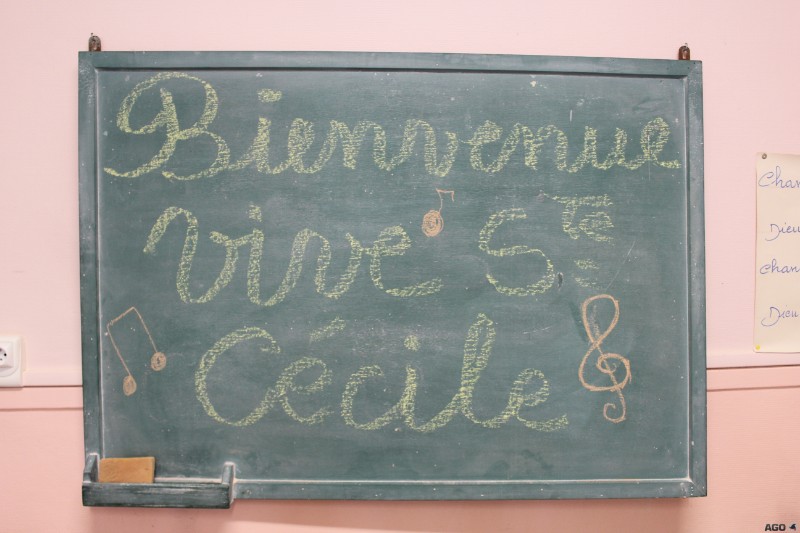 Bienvenue
Vive Ste
Cécile
Chan
Dieu
Chan
Dieu
AGO